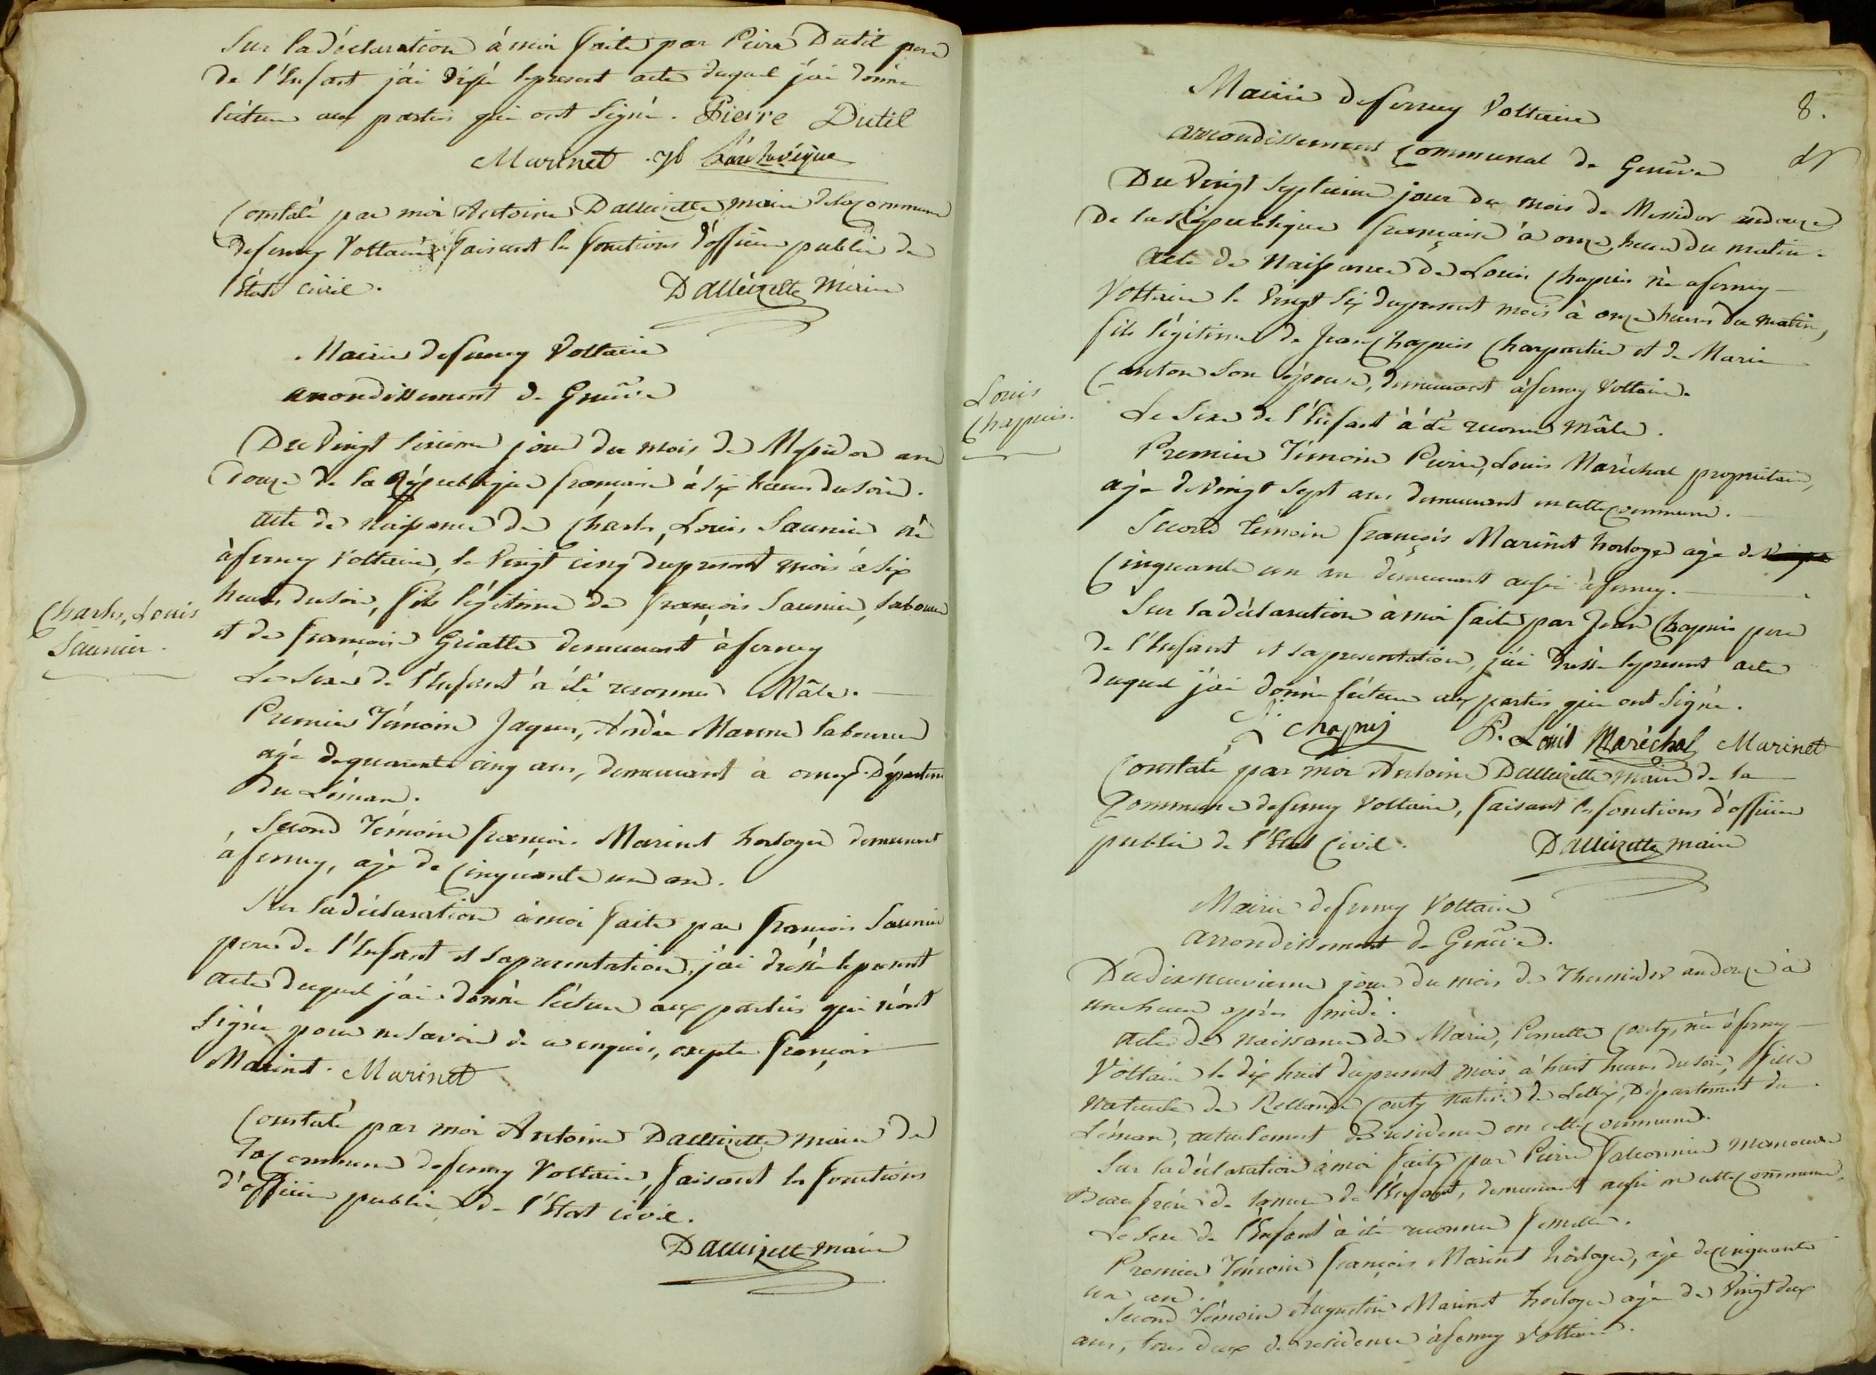 Sur la déclaration à moi faite par Pierre Dutil pere
de l'Enfant j'ai dressé le present acte duquel j'ai donné
lecture aux parties qui ont signé. Pierre Dutil
Marinet
Constaté par moi Antoine Dallèizette maire de la Commune
de ferney Voltaire faisant les fonctions d'officier public de
l'état civil. Dallèizette maire
Mairie de ferney Voltaire
arrondissement de Genêve
Du vingt sixieme jour du mois de Messidor an
douze de la République française à six heures du soir.
acte de naissance de Charles, Louis Saunier né
à ferney Voltaire, le vingt cinq du present mois à six
heures du soir, fils légitime de françois Saunier, laboureur
Charles, Louis
Saunier.
et de françoise Griatte demeurant à ferney
Le sexe de l'Enfant à été reconnu Mâle.
Premier Témoin Jaques, Andée Masson laboureur
agé de quarante cinq ans, demeurant à ornex Département
du Léman.
Second Témoin françois Marinet horloger demeurant
à ferney, agé de cinquante un an.
Sur la déclaration à moi faite par françois Saunier
pere de l'Enfant et sa presentation, j'ai dressé le present
acte duquel j'ai donné lecture aux parties qui n'ont
signé pour ne savoir de ce enquis, excepté françois
Marinet. Marinet
Constaté par moi Antoine Dallèizette maire de
la Commune de ferney Voltaire, faisant les fonctions
d'officier public de l'état civil.
Dallèizette maire
8.
Mairie de ferney Voltaire
arrondissement Communal de Genêve
Du vingt septieme jour du mois de Messidor an douze
de la République française à onze heures du matin.
acte de Naissance de Louis Chapuis né a ferney
Voltaire le vingt six du present mois à onze heures du matin,
fils légitime de Jean Chapuis Charpentier et de Marie
Canton son épouse, demeurant à ferney Voltaire.
Louis
Chapuis.
Le sexe de l'Enfant à été reconnu Mâle.
Premier Témoin Pierre, Louis Maréchal propriétaire,
agé de vingt sept ans demeurant en cette commune.
Second témoin françois Marinet horloger agé de
Cinquante un an demeurant aussi à ferney.
Sur la déclaration à moi faite par Jean Chapuis pere
de l'Enfant et sa presentation, j'ai dressé le present acte
duquel j'ai donné lecture aux parties qui ont signé.
J. chapuis P. Louis Maréchal Marinet
Constaté par moi Antoine Dallèizette maire de la
Commune de ferney Voltaire, faisant les fonctions d'officier
public de l'Etat Civil. Dallèizette maire
Mairie de ferney Voltaire
arrondissement de Genêve.
Du dix neuvieme jour du mois de Thermidor an douze à
une heure après midi.
acte de naissance de Marie, Pernette Couty, née à ferney
Voltaire le dix huit du present mois, à huit heures du soir, fille
naturelle de Rollande Couty native de Lelex, Département du
Léman, actuelement de residence en cette commune.
Sur la déclaration à moi faite par Pierre falconnier manouvrier
Beau frère de la mere de l'Enfant, demeurant aussi en cette commune,
Le sexe de l'Enfant à été reconnu femelle.
Premier Témoin françois Marinet horloger, agé de cinquante
un an.
Second Témoin Augustin Marinet horloger agé de vingt deux
ans, tous deux de residence à ferney Voltaire.